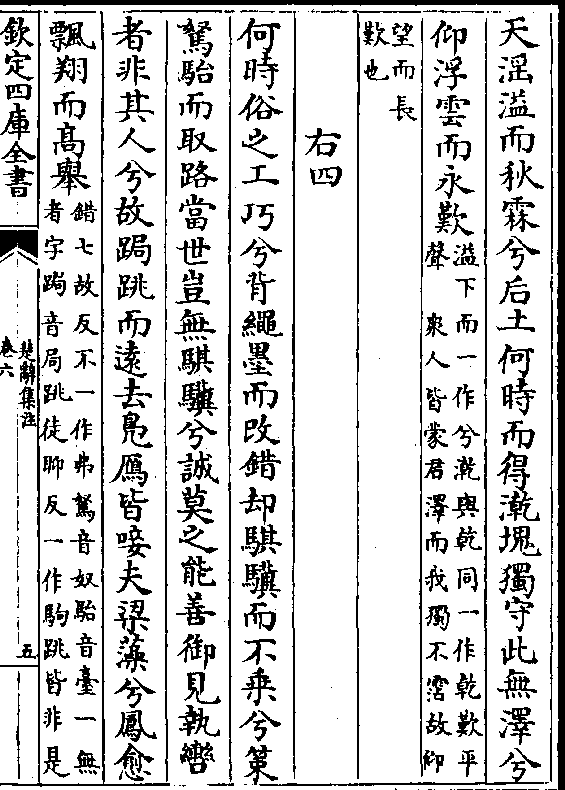 天滛溢而秋霖兮后土何時而得漧塊獨守此無澤兮
仰浮雲而永歎
溢下而一作兮漧與乾同一作乾歎平
聲 衆人皆蒙君澤而我獨不霑故仰
望而長
歎也
右四
何時俗之工巧兮背繩墨而改錯却騏驥而不乗兮策
駑駘而取路當世豈無騏驥兮誠莫之能善御見執轡
者非其人兮故跼跳而逺去鳬鴈皆唼夫梁藻兮鳳愈
飄翔而髙舉
錯七故反不一作弗駑音奴駘音臺一無
者字跼音局跳徒聊反一作駒跳皆非是
欽定四庫全書
楚辭集注
卷六
五